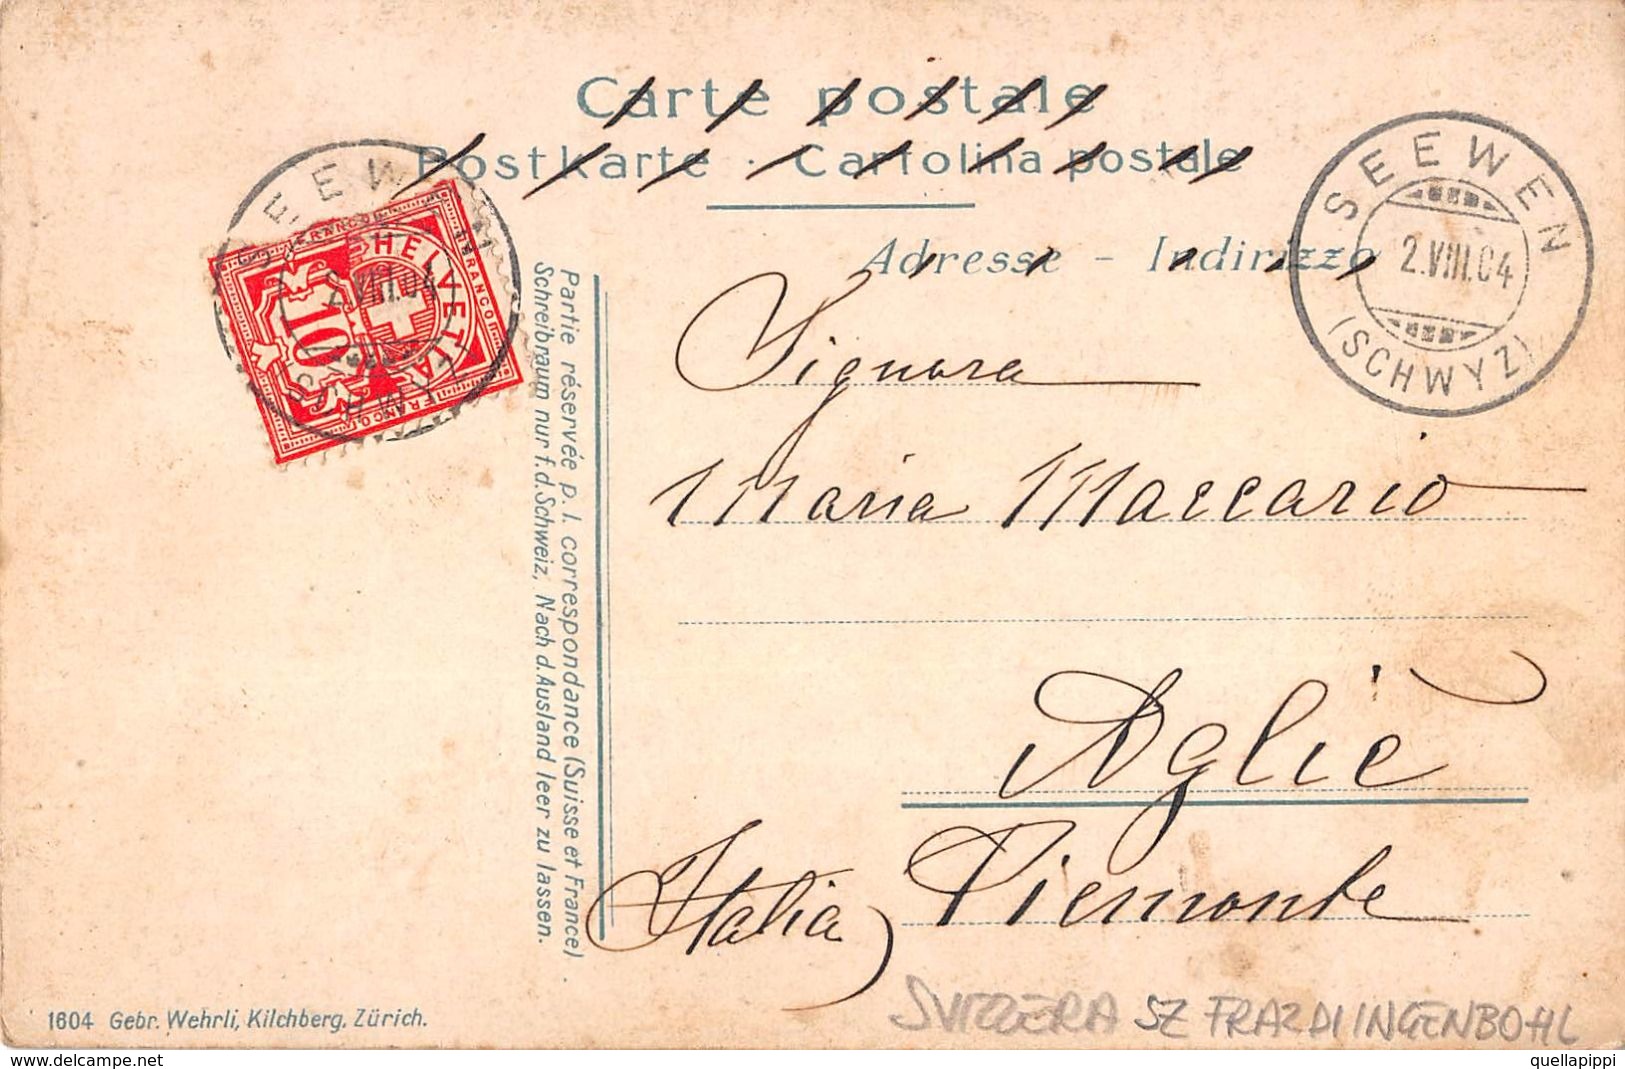 Carte postale
Postkarte · Cartolina postale
Adresse - Indirizzo
SEEWEN
2.VIII.04
(SCHWYZ)
SEEWEN
2.VIII.04
(SCHWYZ)
FRANCO
HELVETIA
FRANCO
10
FRANCO
Partie réservée p. l. correspondance (Suisse et France)
Schreibraum nur f. d. Schweiz, Nach d. Ausland leer zu lassen.
Signora
Maria Maccario
Agliè
Piemonte
(Italia)
1604 Gebr. Wehrli, Kilchberg, Zürich.
SVIZZERA SZ FRAZ DI INGENBOHL
http://www.delcampe.net
quellapippi